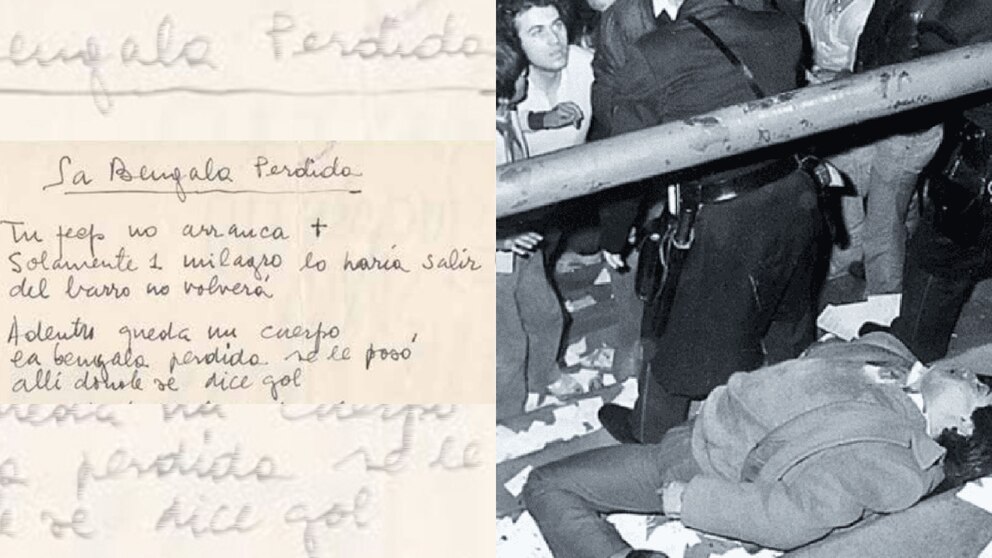 engala Perdida
La Bengala Perdida
Tu jeep no arranca +
Solamente 1 milagro lo haría salir
del barro no volverá
Adentro queda un cuerpo
la bengala perdida se le posó
allí donde se dice gol
un cuerpo
perdida se le
se dice gol